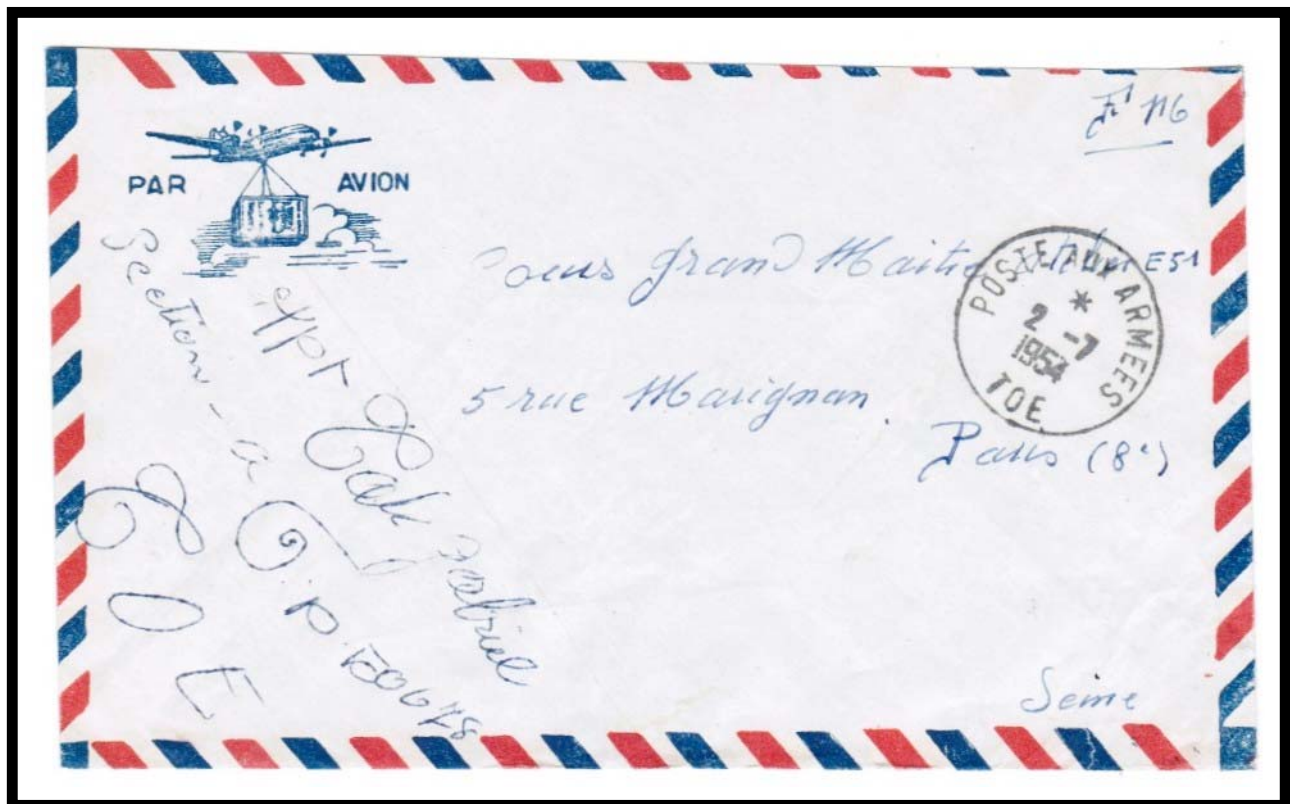 Ft M6
PAR AVION
Cours grand Maitre
E51
POSTE AUX ARMEES
*
2 -7
1954
TOE
5 rue Marignan
Paris (8e)
Seine
expt Gabriel
Section - a
S P 50678
T O E